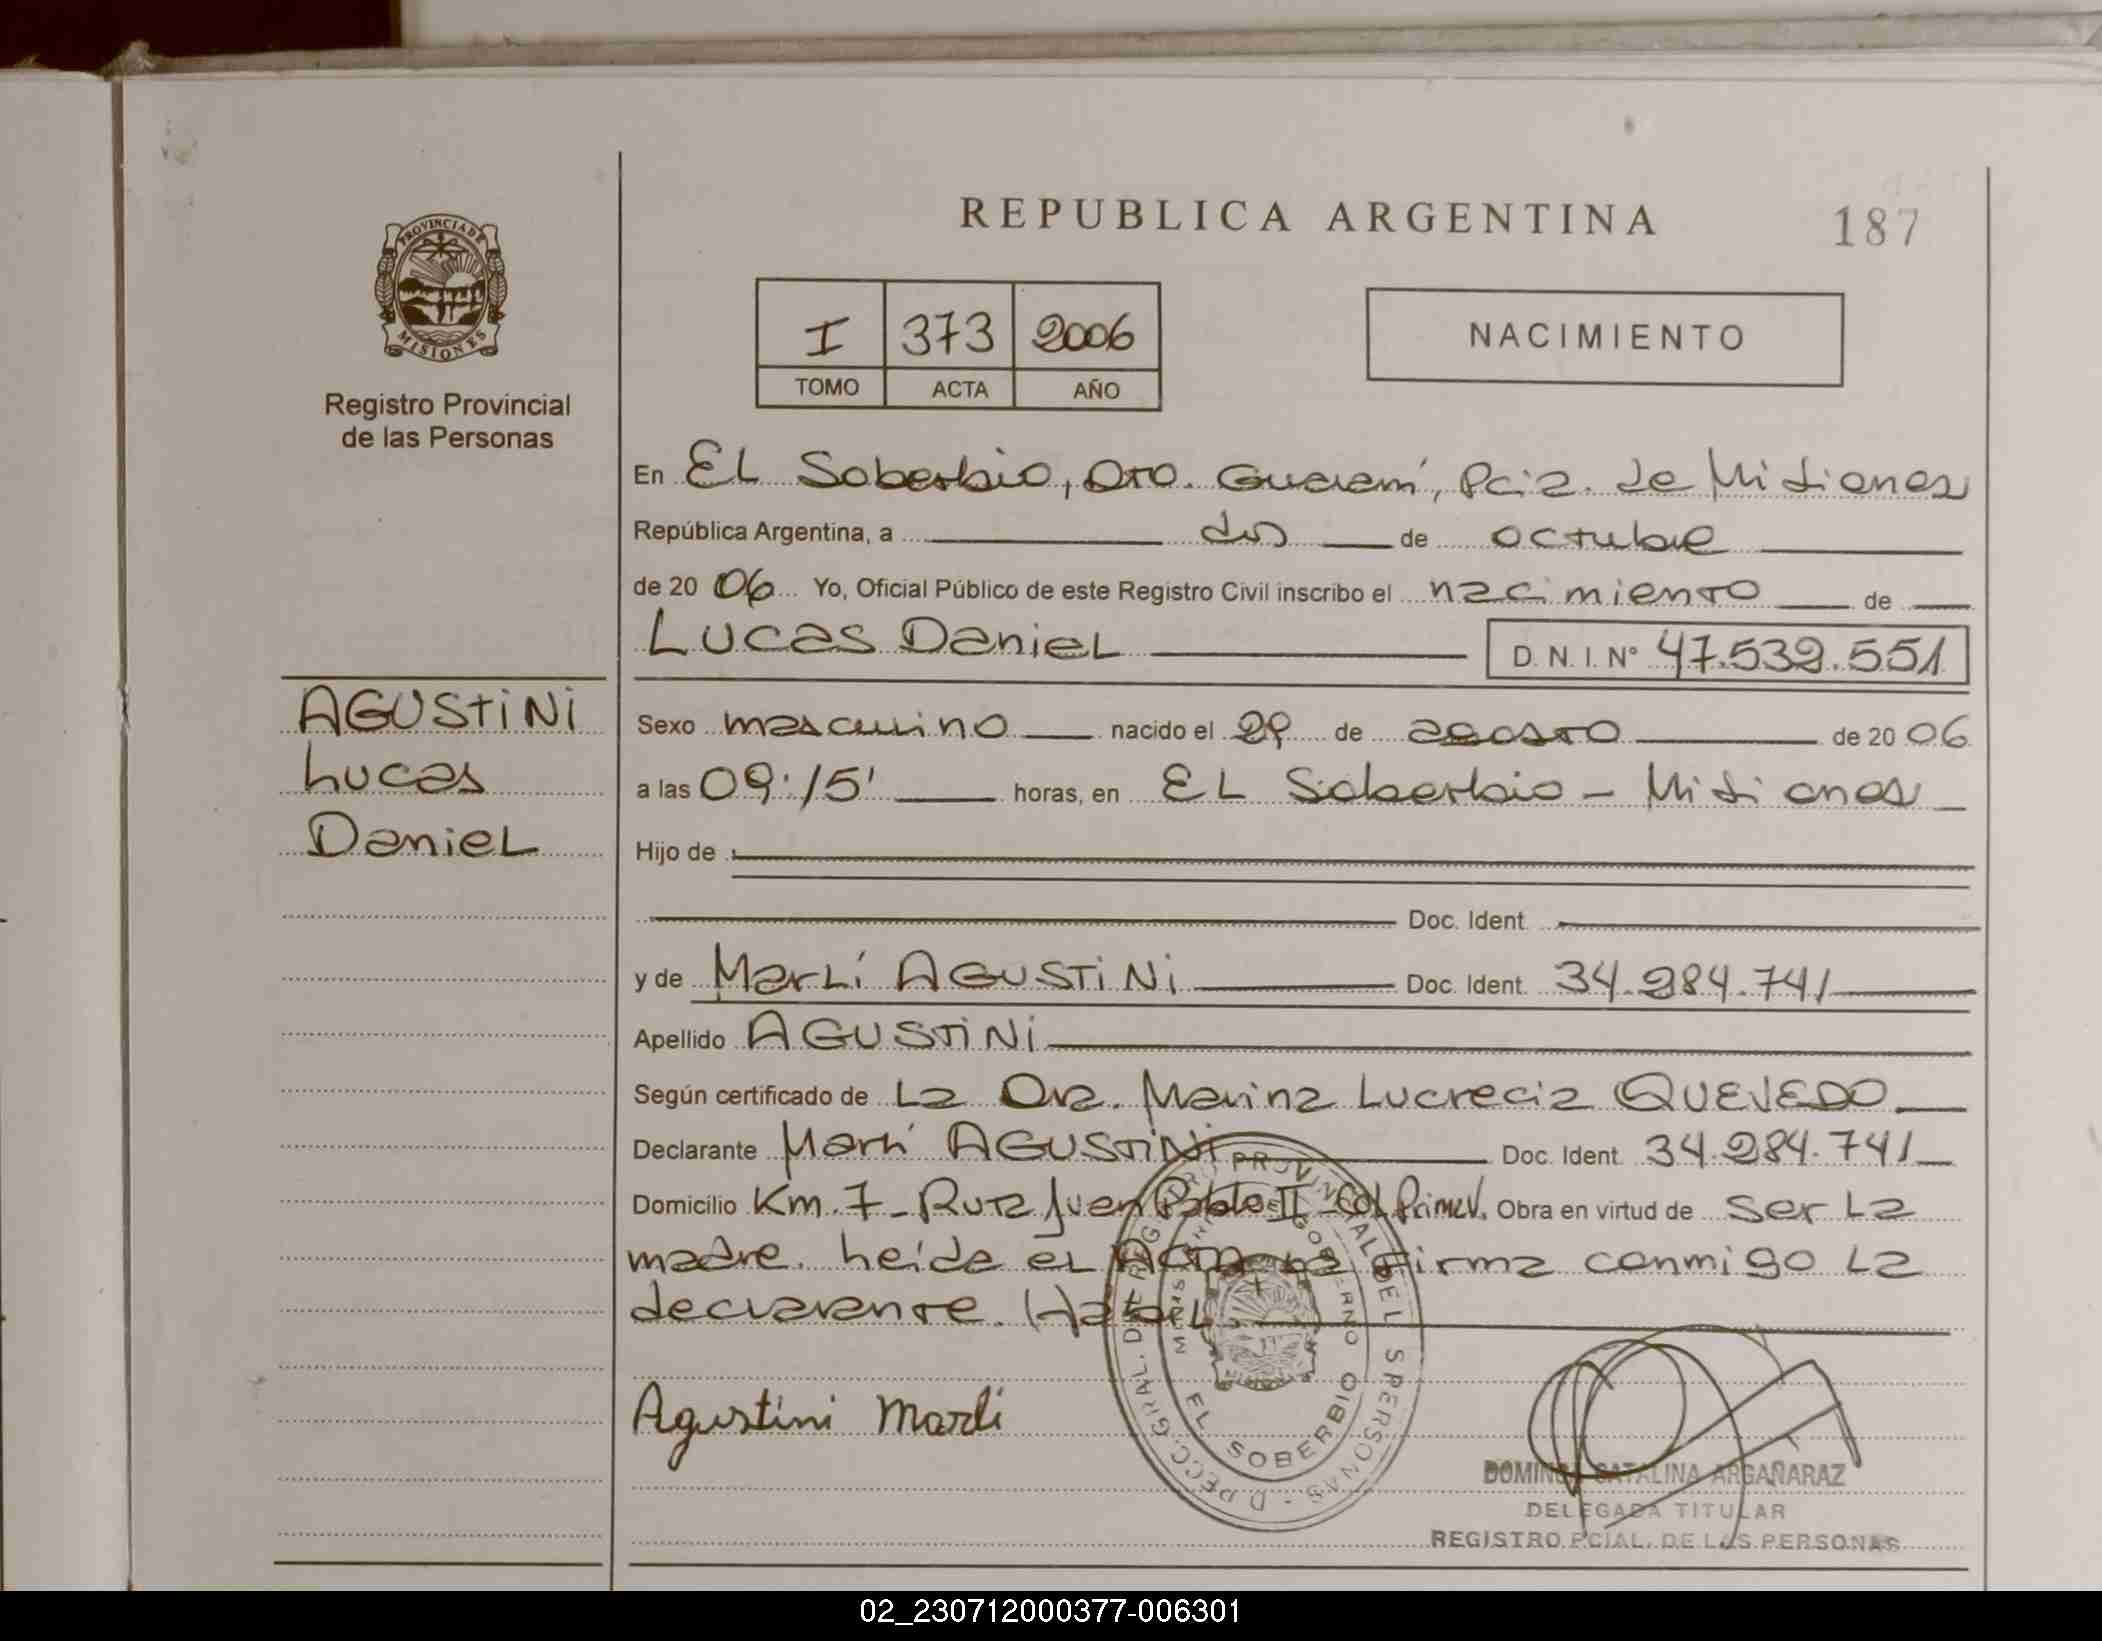 REPUBLICA ARGENTINA
187
PROVINCIA DE
MISIONES
Registro Provincial
de las Personas
I 373 2006
TOMO ACTA AÑO
NACIMIENTO
En EL Soberbio, Dto. Guaraní, Pcia. de Misiones
República Argentina, a dos de octubre
de 20 06 Yo, Oficial Público de este Registro Civil inscribo el nacimiento de
Lucas Daniel D. N. I. N° 47.539.551
AGUSTINI
Lucas
Daniel
Sexo masculino nacido el 29 de agosto de 20 06
a las 09:15' horas, en EL Soberbio - Misiones
Hijo de
Doc. Ident.
y de Marlí AGUSTINI Doc. Ident. 34.284.741
Apellido AGUSTINI
Según certificado de La Dra. Marina Lucrecia QUEVEDO
Declarante Marlí AGUSTINI Doc. Ident. 34.284.741
Domicilio Km. 7 - Ruta Juan Pablo II - Col. Primav. Obra en virtud de ser La
madre. heída el Acta La firma conmigo La
declarante. Habil
Agustini Marli
EL SOBERBIO
DOMINGA CATALINA ARGAÑARAZ
DELEGADA TITULAR
REGISTRO PCIAL. DE LAS PERSONAS
02_230712000377-006301